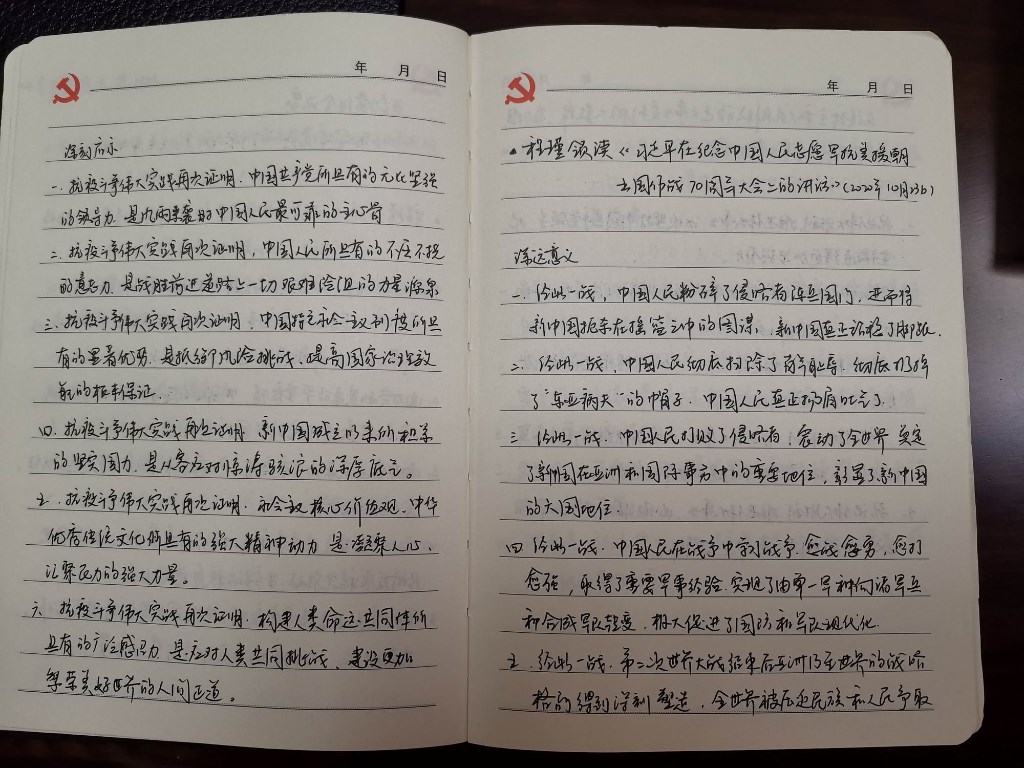 年 月 日
深刻启示
一、抗疫斗争伟大实践再次证明,中国共产党所具有的无比坚强
的领导力,是风雨来袭时中国人民最可靠的主心骨
二、抗疫斗争伟大实践再次证明,中国人民所具有的不屈不挠
的意志力,是战胜前进道路上一切艰难险阻的力量源泉
三、抗疫斗争伟大实践再次证明,中国特色社会主义制度所具
有的显著优势,是抵御风险挑战、提高国家治理效
能的根本保证.
四、抗疫斗争伟大实践再次证明 新中国成立以来所积累
的坚实国力,是从容应对惊涛骇浪的深厚底气。
五、抗疫斗争伟大实践再次证明,社会主义核心价值观、中华
优秀传统文化所具有的强大精神动力 是凝聚人心、
汇聚民力的强大力量。
六、抗疫斗争伟大实践再次证明,构建人类命运共同体所
具有的广泛感召力 是应对人类共同挑战、建设更加
繁荣美好世界的人间正道。
年 月 日
程瑾领读《习近平在纪念中国人民志愿军抗美援朝
出国作战70周年大会上的讲话》(2020年10月23日)
深远意义
一、经此一战,中国人民粉碎了侵略者陈兵国门,进而将
新中国扼杀在摇篮之中的图谋,新中国真正站稳了脚跟.
二、经此一战,中国人民彻底扫除了,彻底扔掉
了"东亚病夫"的帽子,中国人民真正扬眉吐气了
三、经此一战,中国人民打败了侵略者,震动了全世界 奠定
了新中国在亚洲和国际事务中的重要地位,彰显了新中国
的大国地位
四、经此一战,中国人民在战争中学习战争,愈战愈勇,愈打
愈强,取得了重要军事经验,实现了由单一军种向诸军兵
种合成军队转变,极大促进了国防和军队现代化.
五、经此一战,第二次世界大战结束后亚洲乃至世界的战略
格局得到深刻塑造,全世界被压迫民族和人民争取